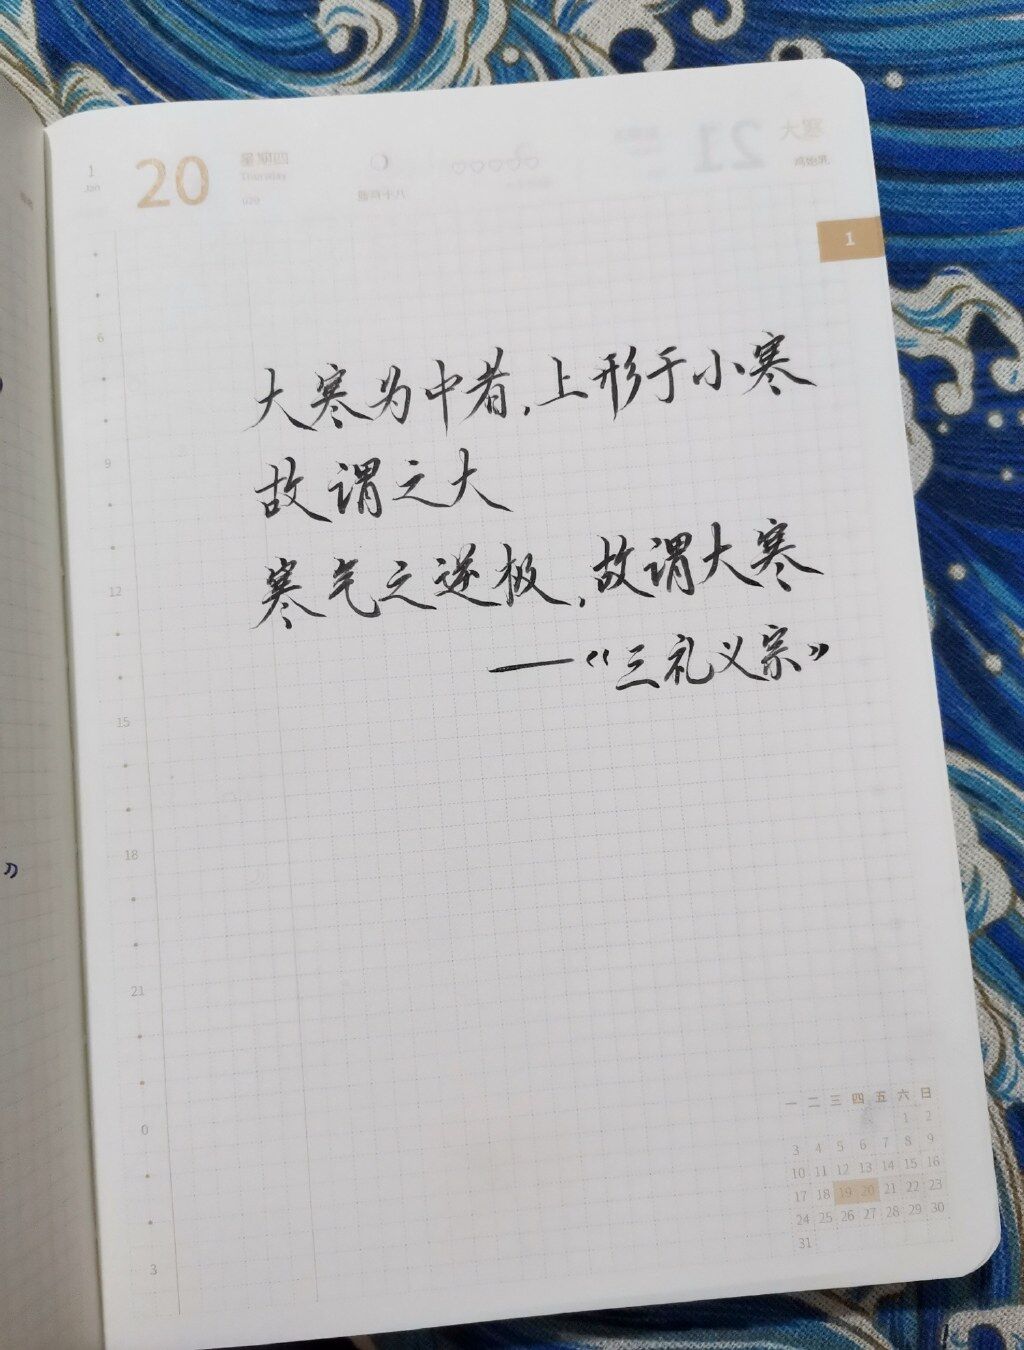 1
Jan
20
星期四
Thursday
020
21
大寒
1
6
大寒为中者，上形于小寒
故谓之大
9
寒气之逆极，故谓大寒
12
——《三礼义宗》
15
18
》
21
0
3
一 二 三 四 五 六 日
1 2
3 4 5 6 7 8 9
10 11 12 13 14 15 16
17 18 19 20 21 22 23
24 25 26 27 28 29 30
31